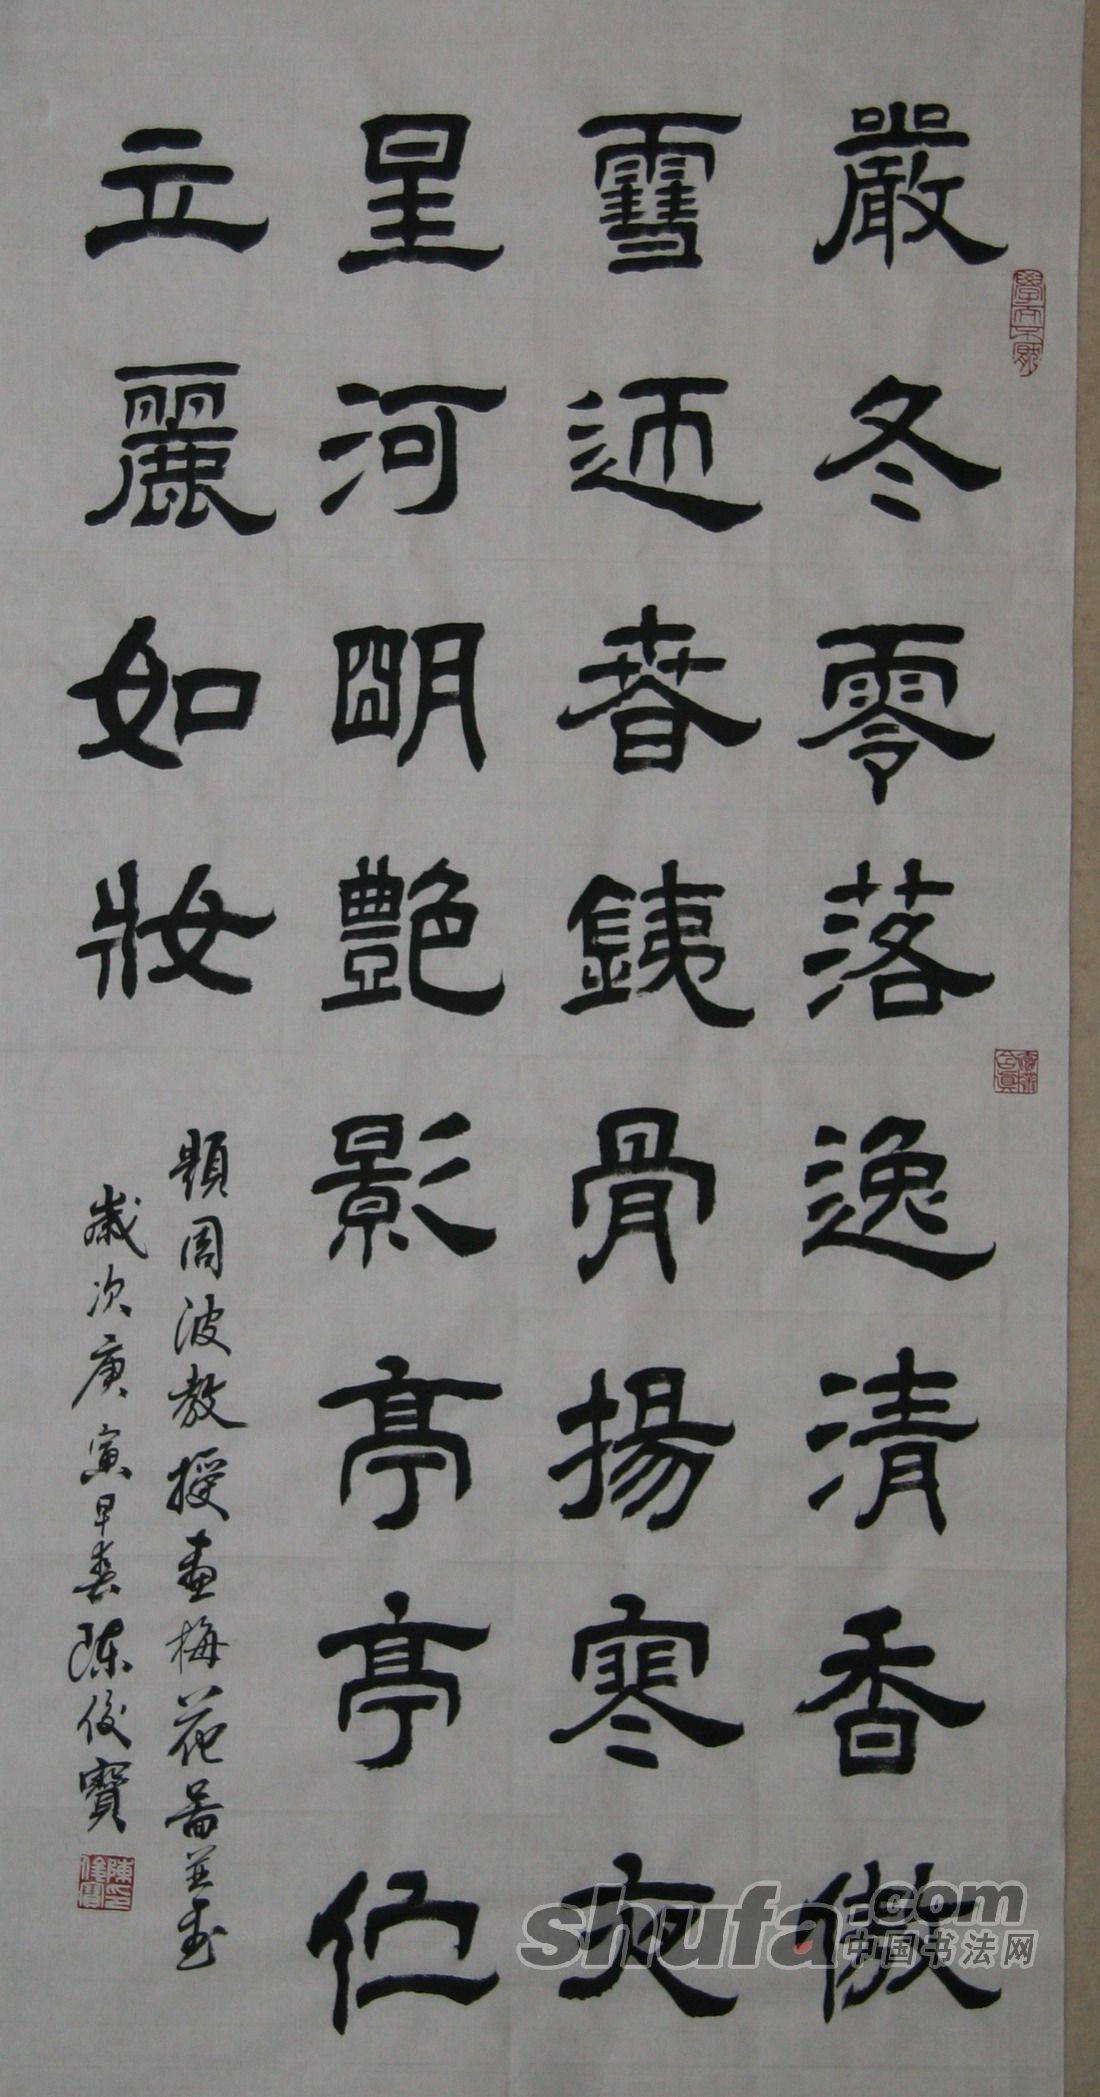 嚴冬零落逸清香傲
雪迊春鐵骨揚寒夜
星河明艷影亭亭伫
立麗如妝
題周波教授畫梅花圖並書
歲次庚寅早春陈俊寶
shufa.com
中国书法网